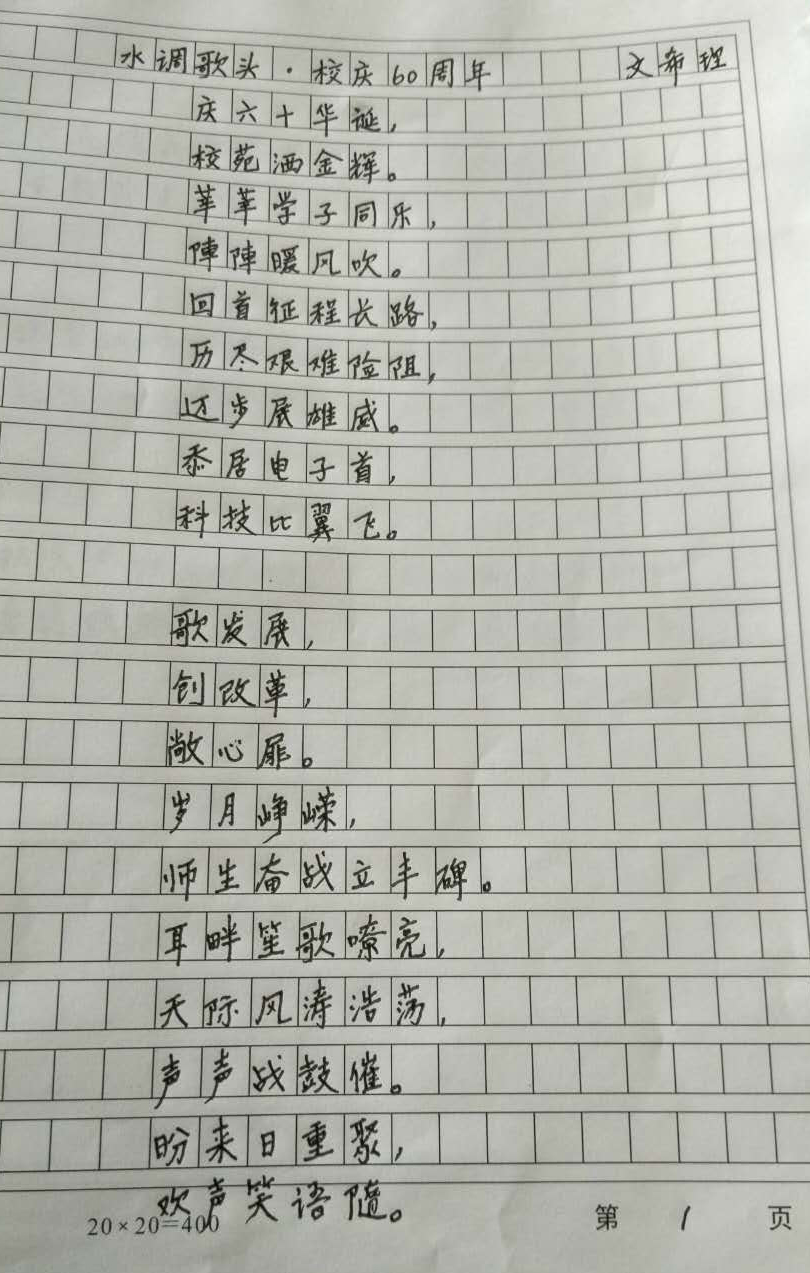 水调歌头·校庆60周年 文希理
庆六十华诞,
校苑洒金辉。
莘莘学子同乐,
陣陣暖风吹。
回首征程长路,
历尽艰难险阻,
迈步展雄威。
忝居电子首,
科技比翼飞。
歌发展,
创改革,
敞心扉。
岁月峥嵘,
师生奋战立丰碑。
耳畔笙歌嘹亮,
天际风涛浩荡,
声声战鼓催。
盼来日重聚,
欢声笑语随。
20×20=400 第 1 页